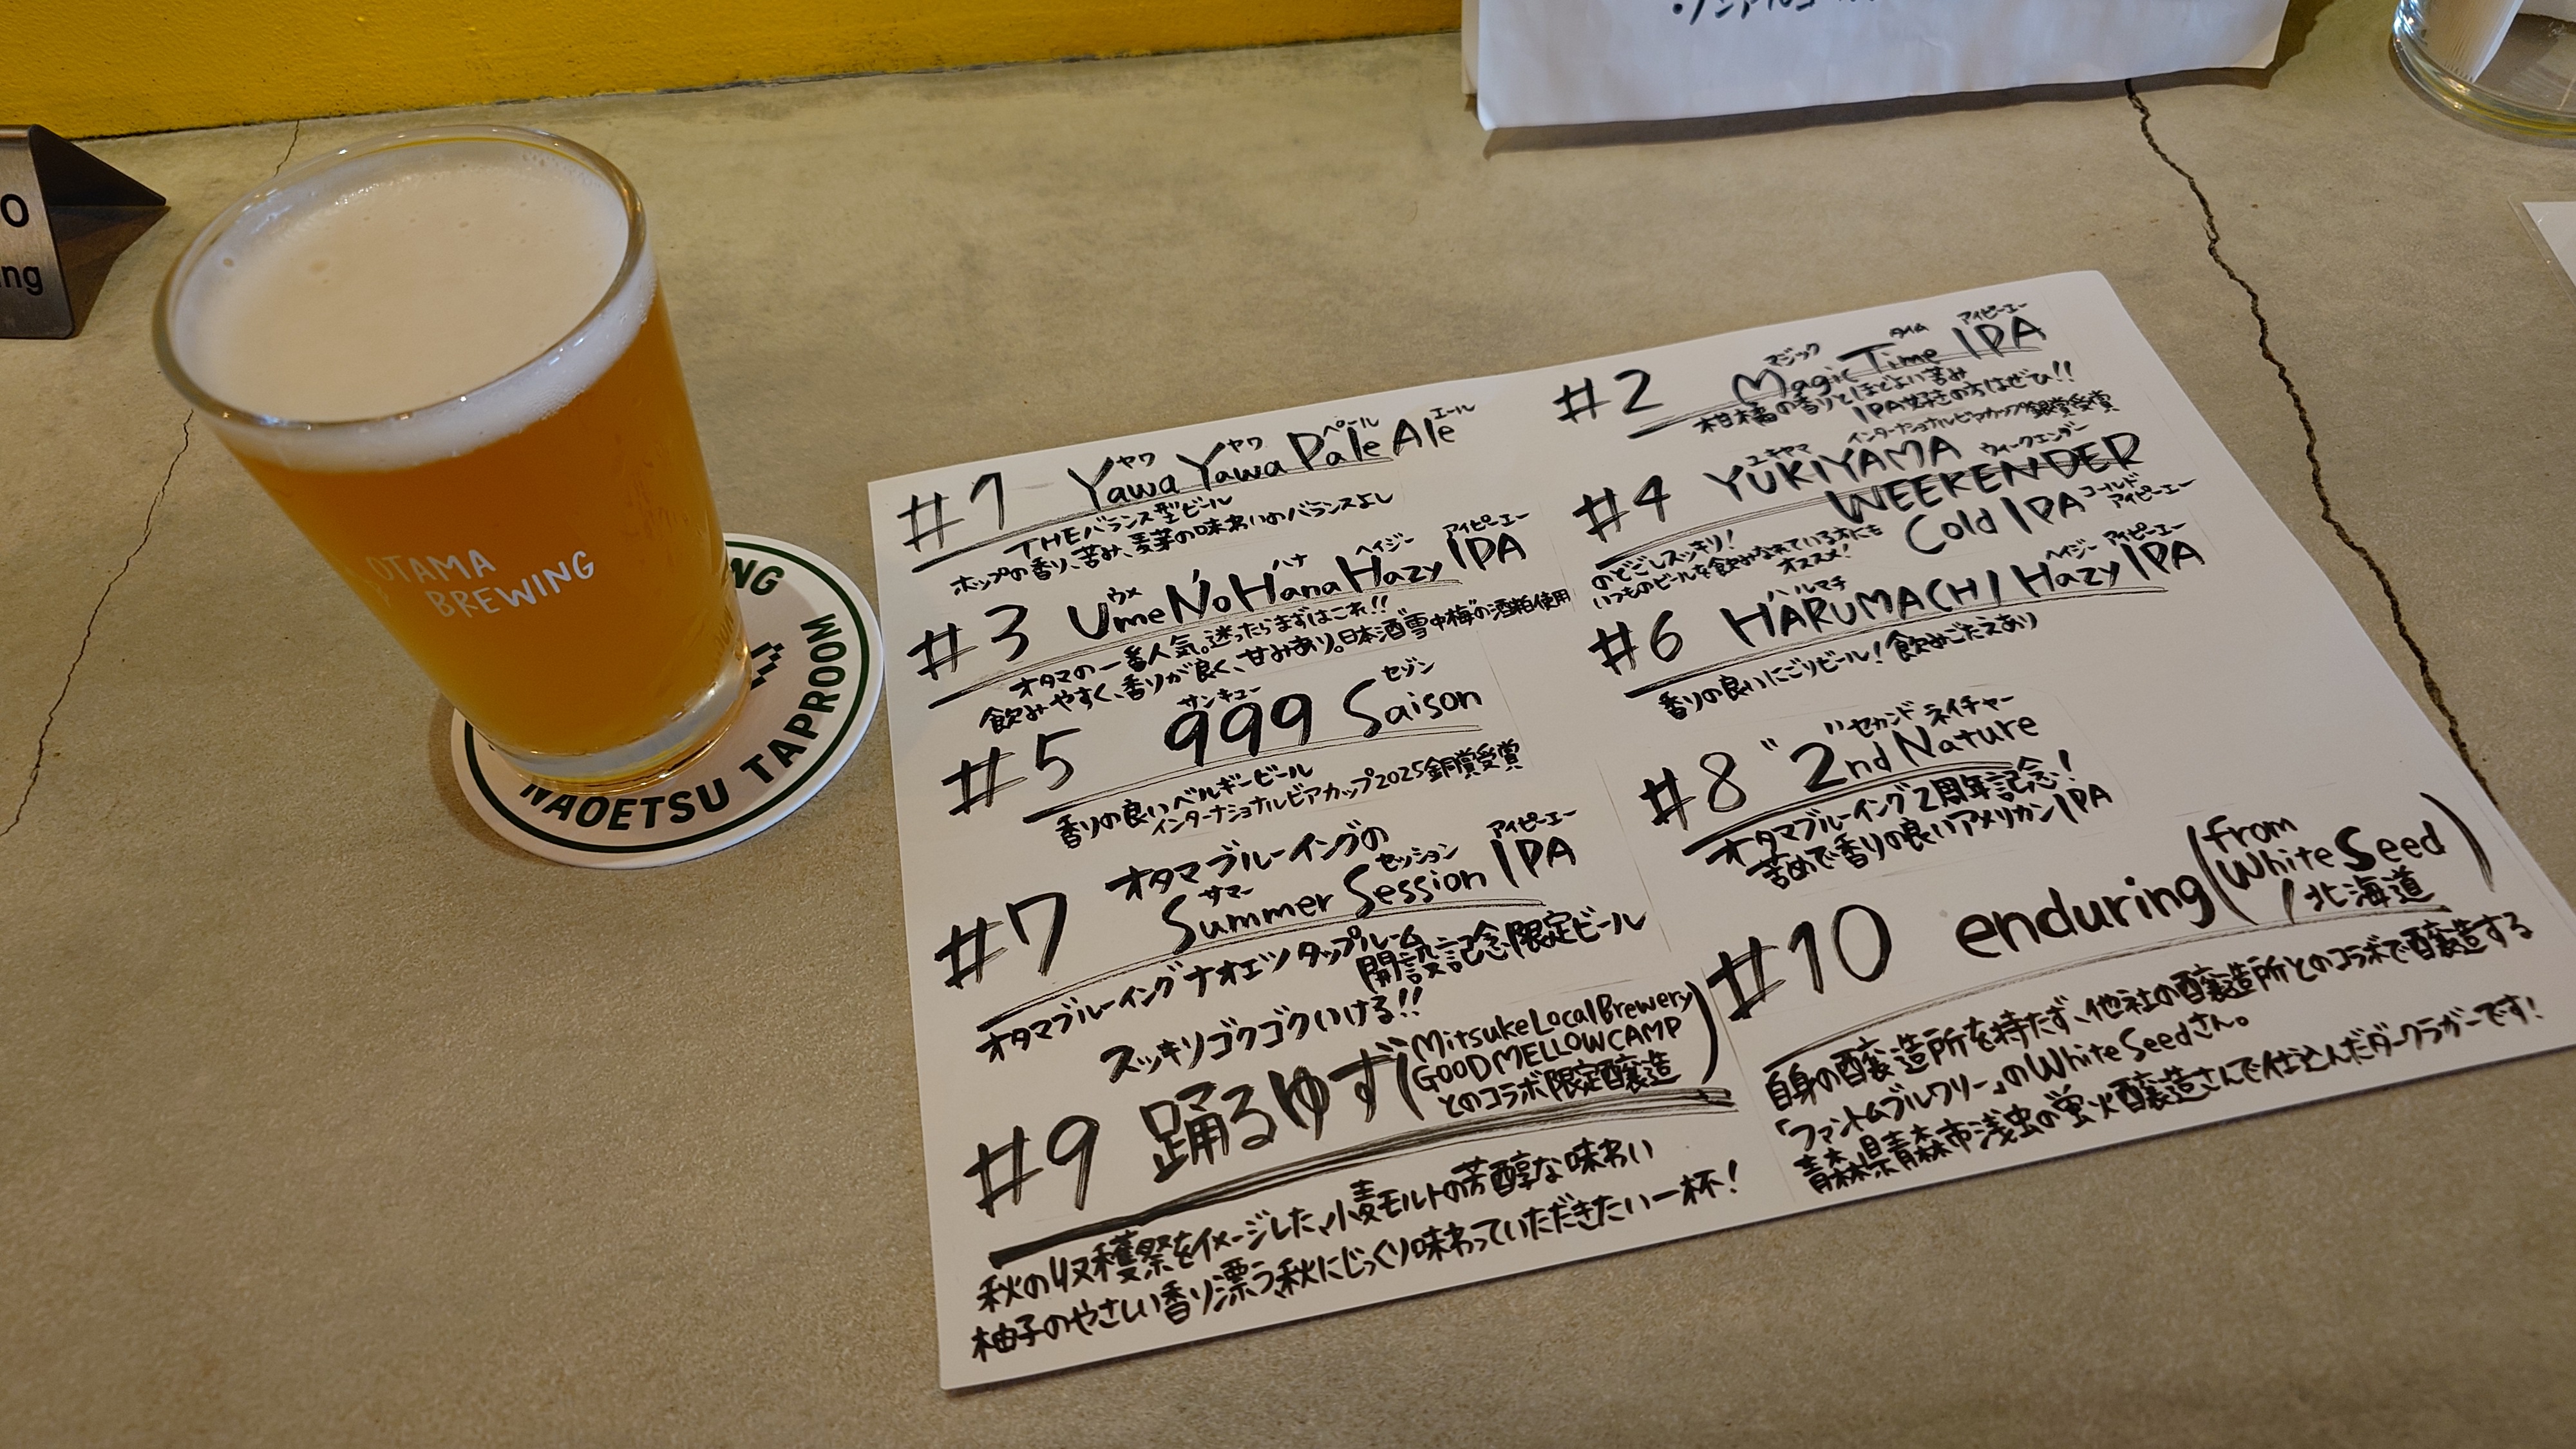 ・ノンアルコー
O
ng
OTAMA
BREWING
NG
NAOETSU TAPROOM
ヤワ ヤワ ペール エール
#1 Yawa Yawa Pale Ale
THEバランス型ビール
ホップの香り、苦み、麦芽の味わいのバランスよし
ウメ ノ ハナ ヘイジー アイピーエー
#3 Ume No Hana Hazy IPA
オタマの一番人気。迷ったらまずはこれ!!
飲みやすく、香りが良く、甘みあり。日本酒"雪中梅"の酒粕使用
サンキュー セゾン
#5 999 Saison
香りの良いベルギービール
インターナショナルビアカップ2025銅賞受賞
オタマブルーイングの
サマー セッション アイピーエー
#7 Summer Session IPA
オタマブルーイングナオエツタップルーム
開設記念限定ビール
スッキリゴクゴクいける!!
#9 踊るゆず(MitsukeLocalBrewery
"GOODMELLOWCAMP"
とのコラボ限定醸造)
秋の収穫祭をイメージした、小麦モルトの芳醇な味わい
柚子のやさしい香り漂う、秋にじっくり味わっていただきたい一杯!
マジック タイム アイピーエー
#2 Magic Time IPA
柑橘の香りとほどよい苦み
IPA好きの方はぜひ!!
インターナショナルビアカップ銀賞受賞
ユキヤマ ウィークエンダー
#4 YUKIYAMA
WEEKENDER
Cold IPA コールド アイピーエー
のどごしスッキリ!
いつものビールを飲みなれている方にも
オススメ!
ハルマチ ヘイジー アイピーエー
#6 HARUMACHI Hazy IPA
香りの良いにごりビール!飲みごたえあり
"セカンド ネイチャー
#8 "2nd Nature
オタマブルーイング2周年記念!
苦めで香りの良いアメリカンIPA
#10 enduring (from
White Seed
/北海道)
自身の醸造所を持たず、他社の醸造所とのコラボで醸造する
「ファントムブルワリー」のWhite Seedさん。
青森県青森市浅虫の蛍火醸造さんで仕込んだダークラガーです!